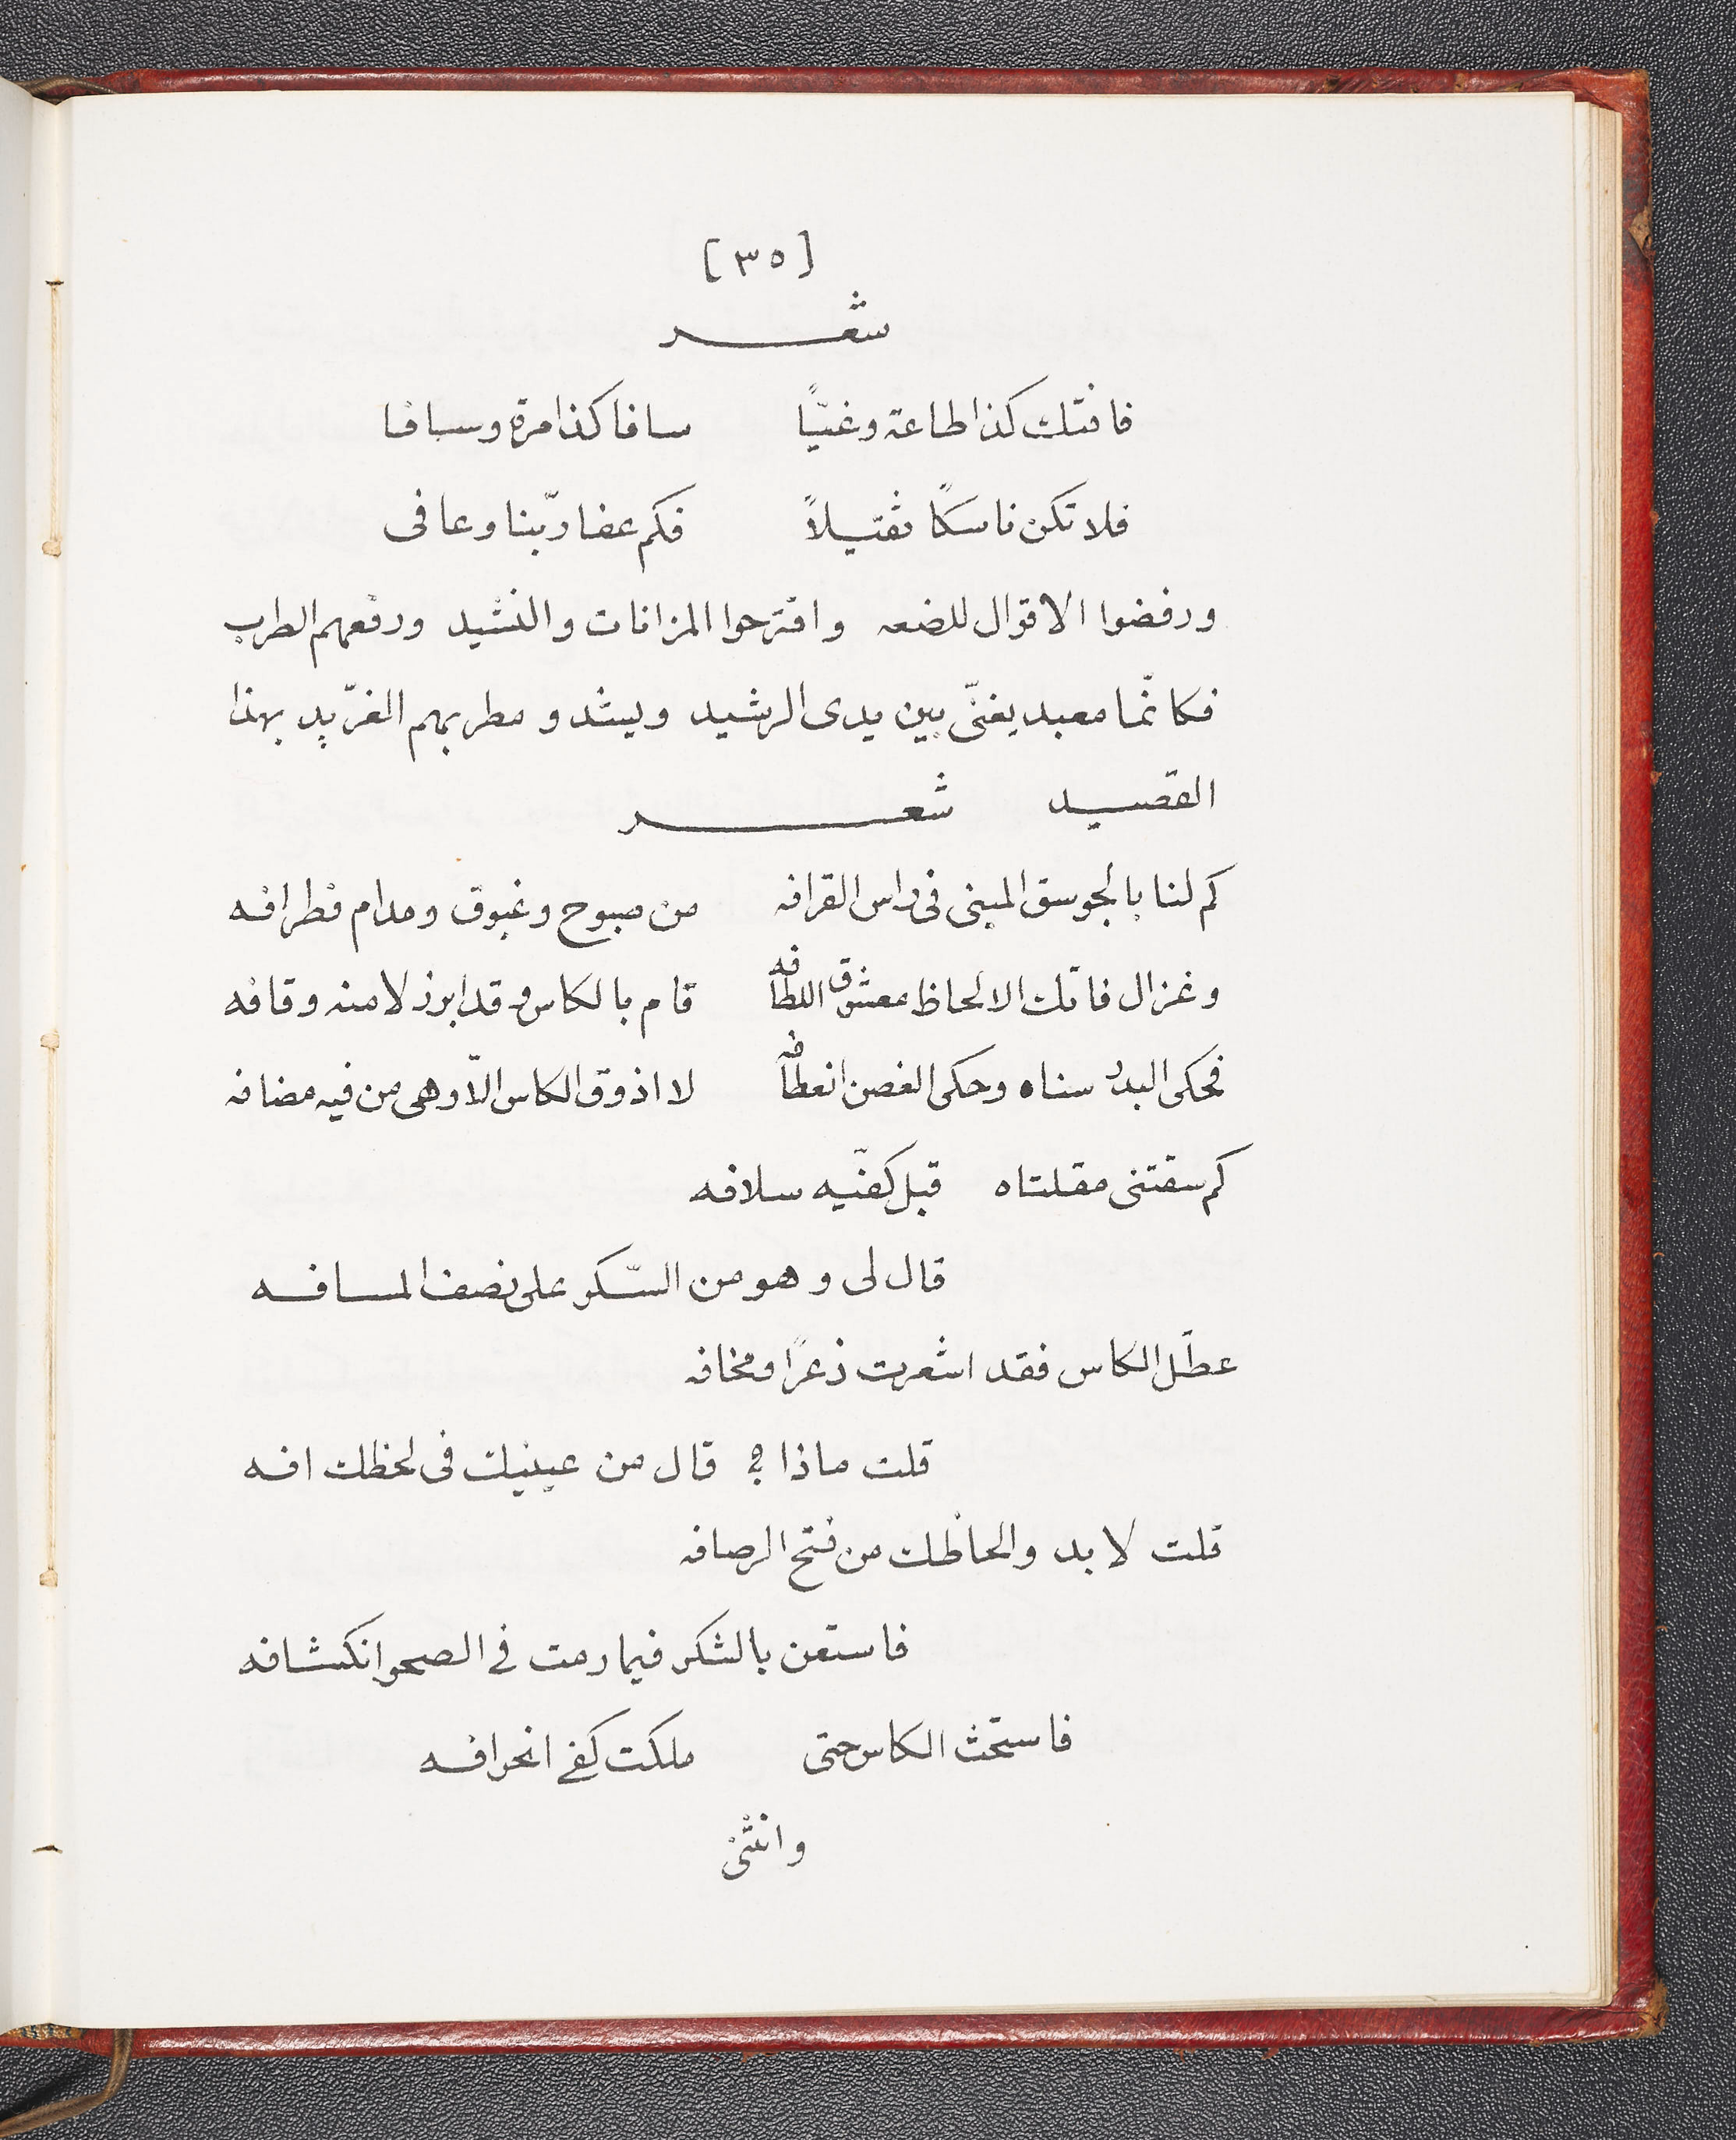 [٣٥]
شعر
فافتك كذا طاعة وغيًّا سافا كذا مرة وسافا
فلا تكن ناسكًا ثقيلاً فكم عفا ربّنا وعافى
ورفضوا الاقوال للضعه واقترحوا المزافات والنشيد ورفعهم الطرب
فكانّما معبد يغنّى بين يدى الرشيد ويشدو مطربهم الغرّيد بهذا
القصيد شعر
كم لنا بالجوسق المبنى فى راس القرافه من صبوح وغبوق ومدام فطرافه
وغزال فاتك الالحاظ معشوق اللطافه قام بالكاس وقد ابرز لامنه وقافه
فحكى البدر سناه وحكى الغصن انعطافه لا اذوق الكاس الّا وهى من فيه مضافه
كم سقتنى مقلتاه قبل كفّيه سلافه
قال لى وهو من السّكر على نصف المسافه
عطّل الكاس فقد اشعرت ذعرًا ومخافه
قلت ماذا ؟ قال من عينيك فى لحظك افه
قلت لا بد والحاظك من فتح الرصافه
فاستعن بالشكر فيما رمت في الصحو انكشافه
فاستحث الكاس حتى ملكت كفي انحرافه
وانثنى